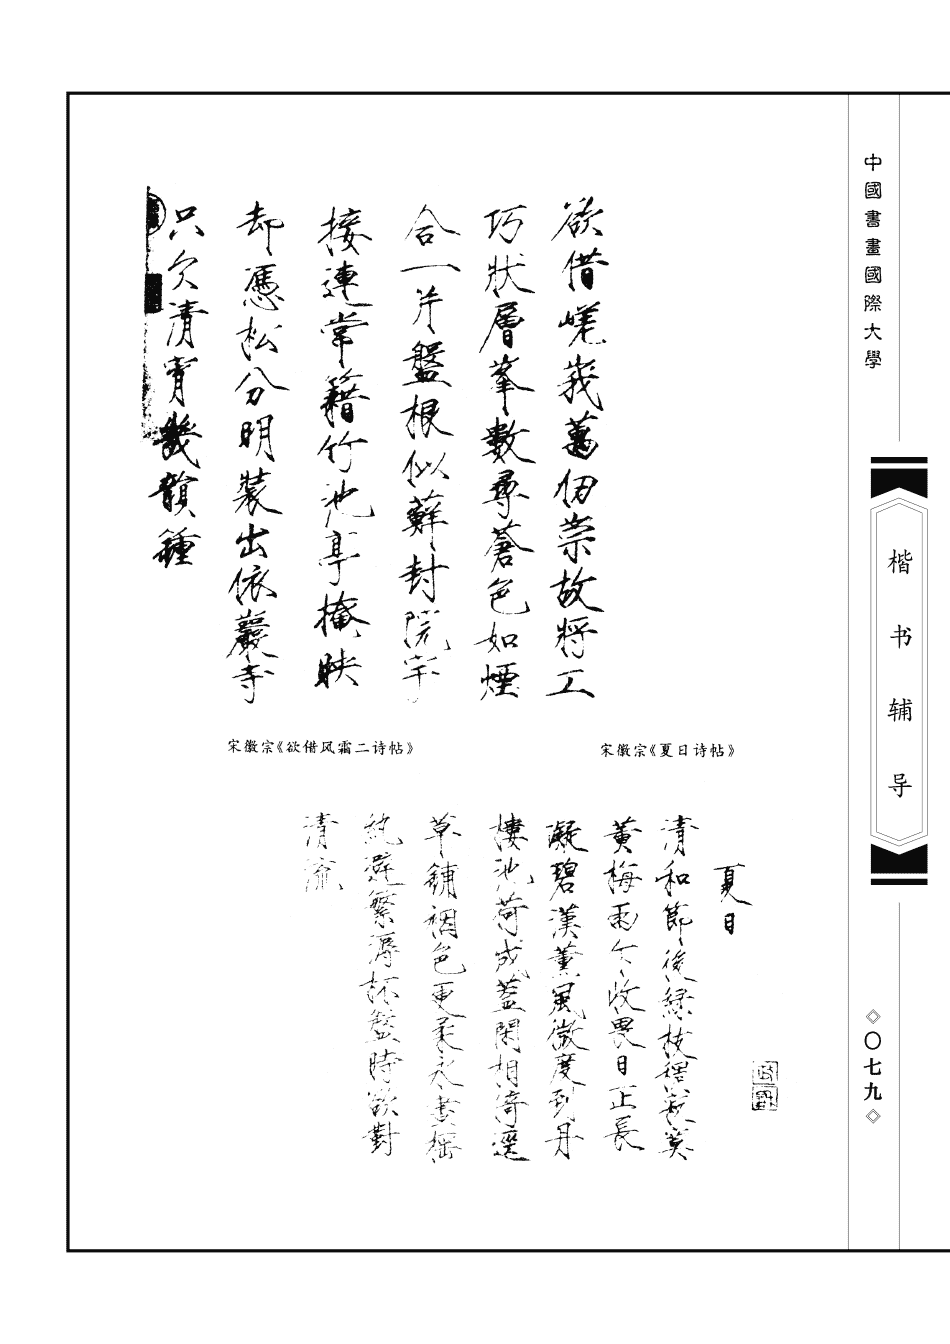 中國書畫國際大學
楷书辅导
〇七九
欲借嵯峨萬仞崇故将工
巧狀層峯數尋蒼色如煙
合一片盤根似蘚封院宇
接連常籍竹池亭掩映
却憑松分明裝出依巖寺
只欠清宵幾韻鍾
宋徽宗《欲借风霜二诗帖》
宋徽宗《夏日诗帖》
夏日
清和節後綠枝稠寂寞
黃梅雨乍收畏日正長
凝碧漢薰風微度到丹
樓池荷成蓋閑相倚逕
草鋪裀色更柔永晝搖
紈避繁溽杯盤時欲對
清流